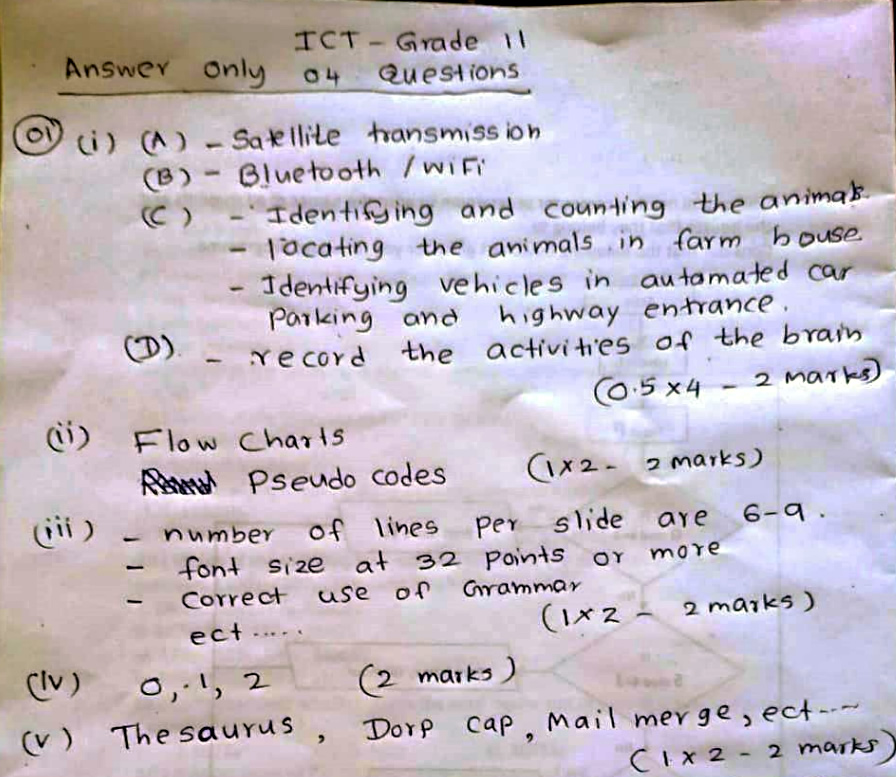 ICT - Grade 11
Answer only 04 Questions
01 (i) (A) - Satellite transmission
(B) - Bluetooth / WiFi
(C) - Identifying and counting the animals
- locating the animals in farm house
- Identifying vehicles in automated car
parking and highway entrance.
(D). - record the activities of the brain
(0.5 x 4 - 2 marks)
(ii) Flow Charts
Pseudo codes (1x2 - 2 marks)
(iii) - number of lines per slide are 6-9.
- font size at 32 points or more
- Correct use of Grammar
ect ..... (1x2 - 2 marks)
(iv) 0, 1, 2 (2 marks)
(v) Thesaurus, Dorp cap, Mail merge, ect ....
(1 x 2 - 2 marks)